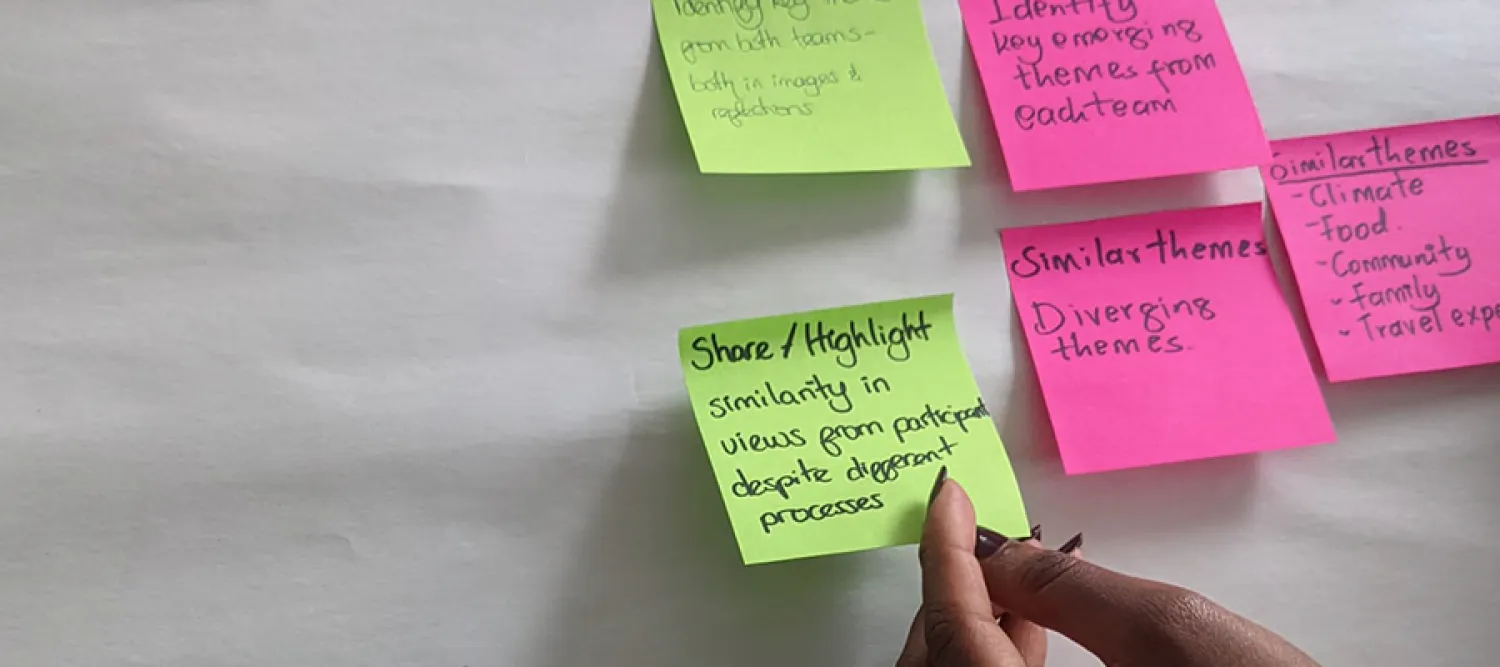 Identify key
from both teams-
both in images &
reflections
Identify
key emerging
themes from
each team
Similar themes
-Climate
-Food.
-Community
-Family
-Travel expe
Similar themes
Diverging
themes.
Share / Highlight
similarity in
views from participant
despite different
processes